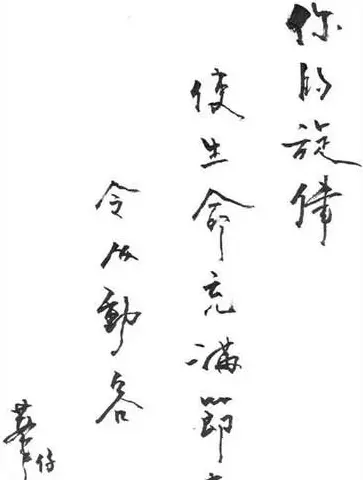 你的旋律
使生命充滿節
令人動容